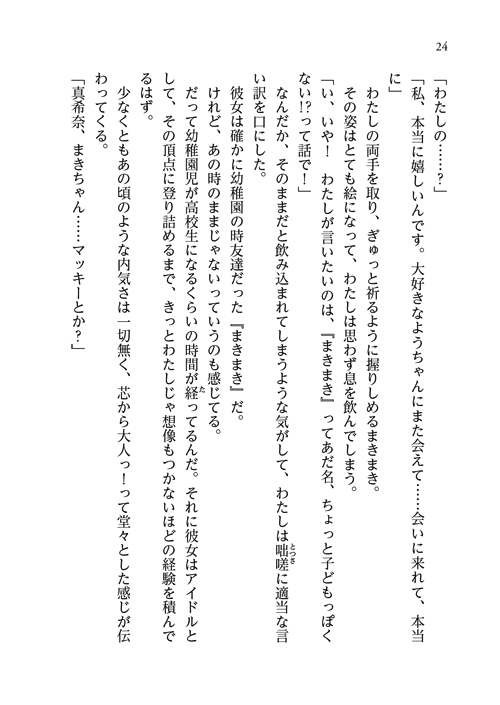 24
「わたしの……？」
「私、本当に嬉しいんです。大好きなようちゃんにまた会えて……会いに来れて、本当
に」
わたしの両手を取り、ぎゅっと祈るように握りしめるまきまき。
その姿はとても絵になって、わたしは思わず息を飲んでしまう。
「い、いや！　わたしが言いたいのは、『まきまき』ってあだ名、ちょっと子どもっぽく
ない!?って話で！」
なんだか、そのままだと飲み込まれてしまうような気がして、わたしは咄嗟とっさに適当な言
い訳を口にした。
彼女は確かに幼稚園の時友達だった『まきまき』だ。
けれど、あの時のままじゃないっていうのも感じてる。
だって幼稚園児が高校生になるくらいの時間が経たってるんだ。それに彼女はアイドルと
して、その頂点に登り詰めるまで、きっとわたしじゃ想像もつかないほどの経験を積んで
るはず。
少なくともあの頃のような内気さは一切無く、芯から大人っ！って堂々とした感じが伝
わってくる。
「真希奈、まきちゃん……マッキーとか？」